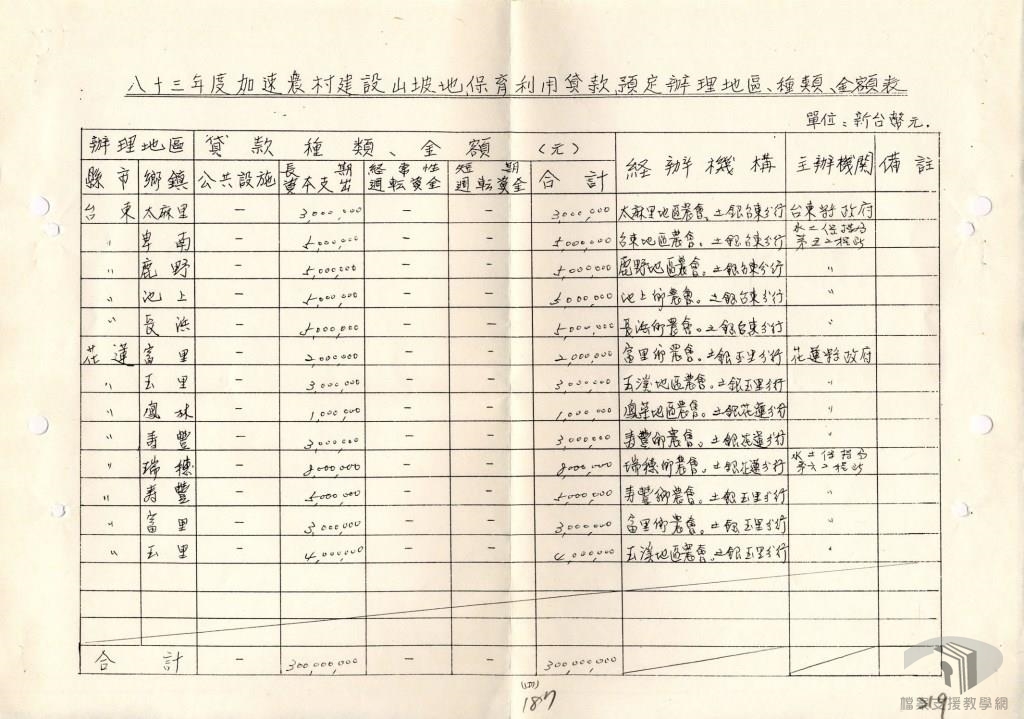 八十三年度加速農村建設山坡地保育利用貸款預定辦理地區、種類、金額表
單位：新台幣元.
辦理地區 貸款種類、金額（元） 経辦機構 主辦機関 備註
縣市 鄉鎮 公共設施 長期資本支出 経事性週転資金 短期週転資金 合計
台東 太麻里 － 3,000,000 － － 3,000,000 太麻里地區農會、土銀台東分行 台東縣政府
〃 卑南 － 5,000,000 － － 5,000,000 台東地區農會。土銀台東分行 水土保持局第五工程所
〃 鹿野 － 5,000,000 － － 5,000,000 鹿野地區農會。土銀台東分行 〃
〃 池上 － 5,000,000 － － 5,000,000 池上鄉農會。土銀台東分行 〃
〃 長浜 － 5,000,000 － － 5,000,000 長浜鄉農會。土銀台東分行 〃
花蓮 富里 － 2,000,000 － － 2,000,000 富里鄉農會。土銀玉里分行 花蓮縣政府
〃 玉里 － 3,000,000 － － 3,000,000 玉溪地區農會。土銀玉里分行 〃
〃 鳳林 － 1,000,000 － － 1,000,000 鳳榮地區農會。土銀花蓮分行 〃
〃 寿豐 － 3,000,000 － － 3,000,000 寿豐鄉農會。土銀花蓮分行 〃
〃 瑞穂 － 8,000,000 － － 8,000,000 瑞穂鄉農會。土銀花蓮分行 水土保持局第六工程所
〃 寿豐 － 5,000,000 － － 5,000,000 寿豐鄉農會。土銀玉里分行 〃
〃 富里 － 3,000,000 － － 3,000,000 富里鄉農會。土銀玉里分行 〃
〃 玉里 － 4,000,000 － － 4,000,000 玉溪地區農會。土銀玉里分行 〃
合計 － 300,000,000 － － 300,000,000
187
19
檔案支援教學網